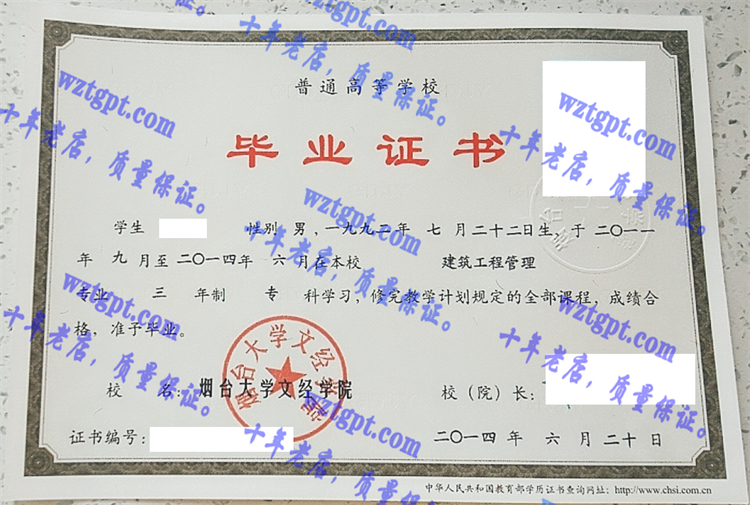 普通高等学校
毕业证书
学生 性别 男，一九九二年 七 月二十二日生，于 二〇一一
年 九 月至 二〇一四年 六 月在本校 建筑工程管理
专业 三 年制 专 科学习，修完教学计划规定的全部课程，成绩合
格，准予毕业。
校 名：烟台大学文经学院 校（院）长：
证书编号： 二〇一四 年 六 月 二十 日
中华人民共和国教育部学历证书查询网址：http://www.chsi.com.cn
烟台大学文经学院
wztgpt.com
十年老店，质量保证。
wztgpt.com
十年老店，质量保证。
wztgpt.com
十年老店，质量保证。
wztgpt.com
十年老店，质量保证。
wztgpt.com
十年老店，质量保证。
wztgpt.com
十年老店，质量保证。
wztgpt.com
十年老店，质量保证。
wztgpt.com
十年老店，质量保证。
wztgpt.com
十年老店，质量保证。